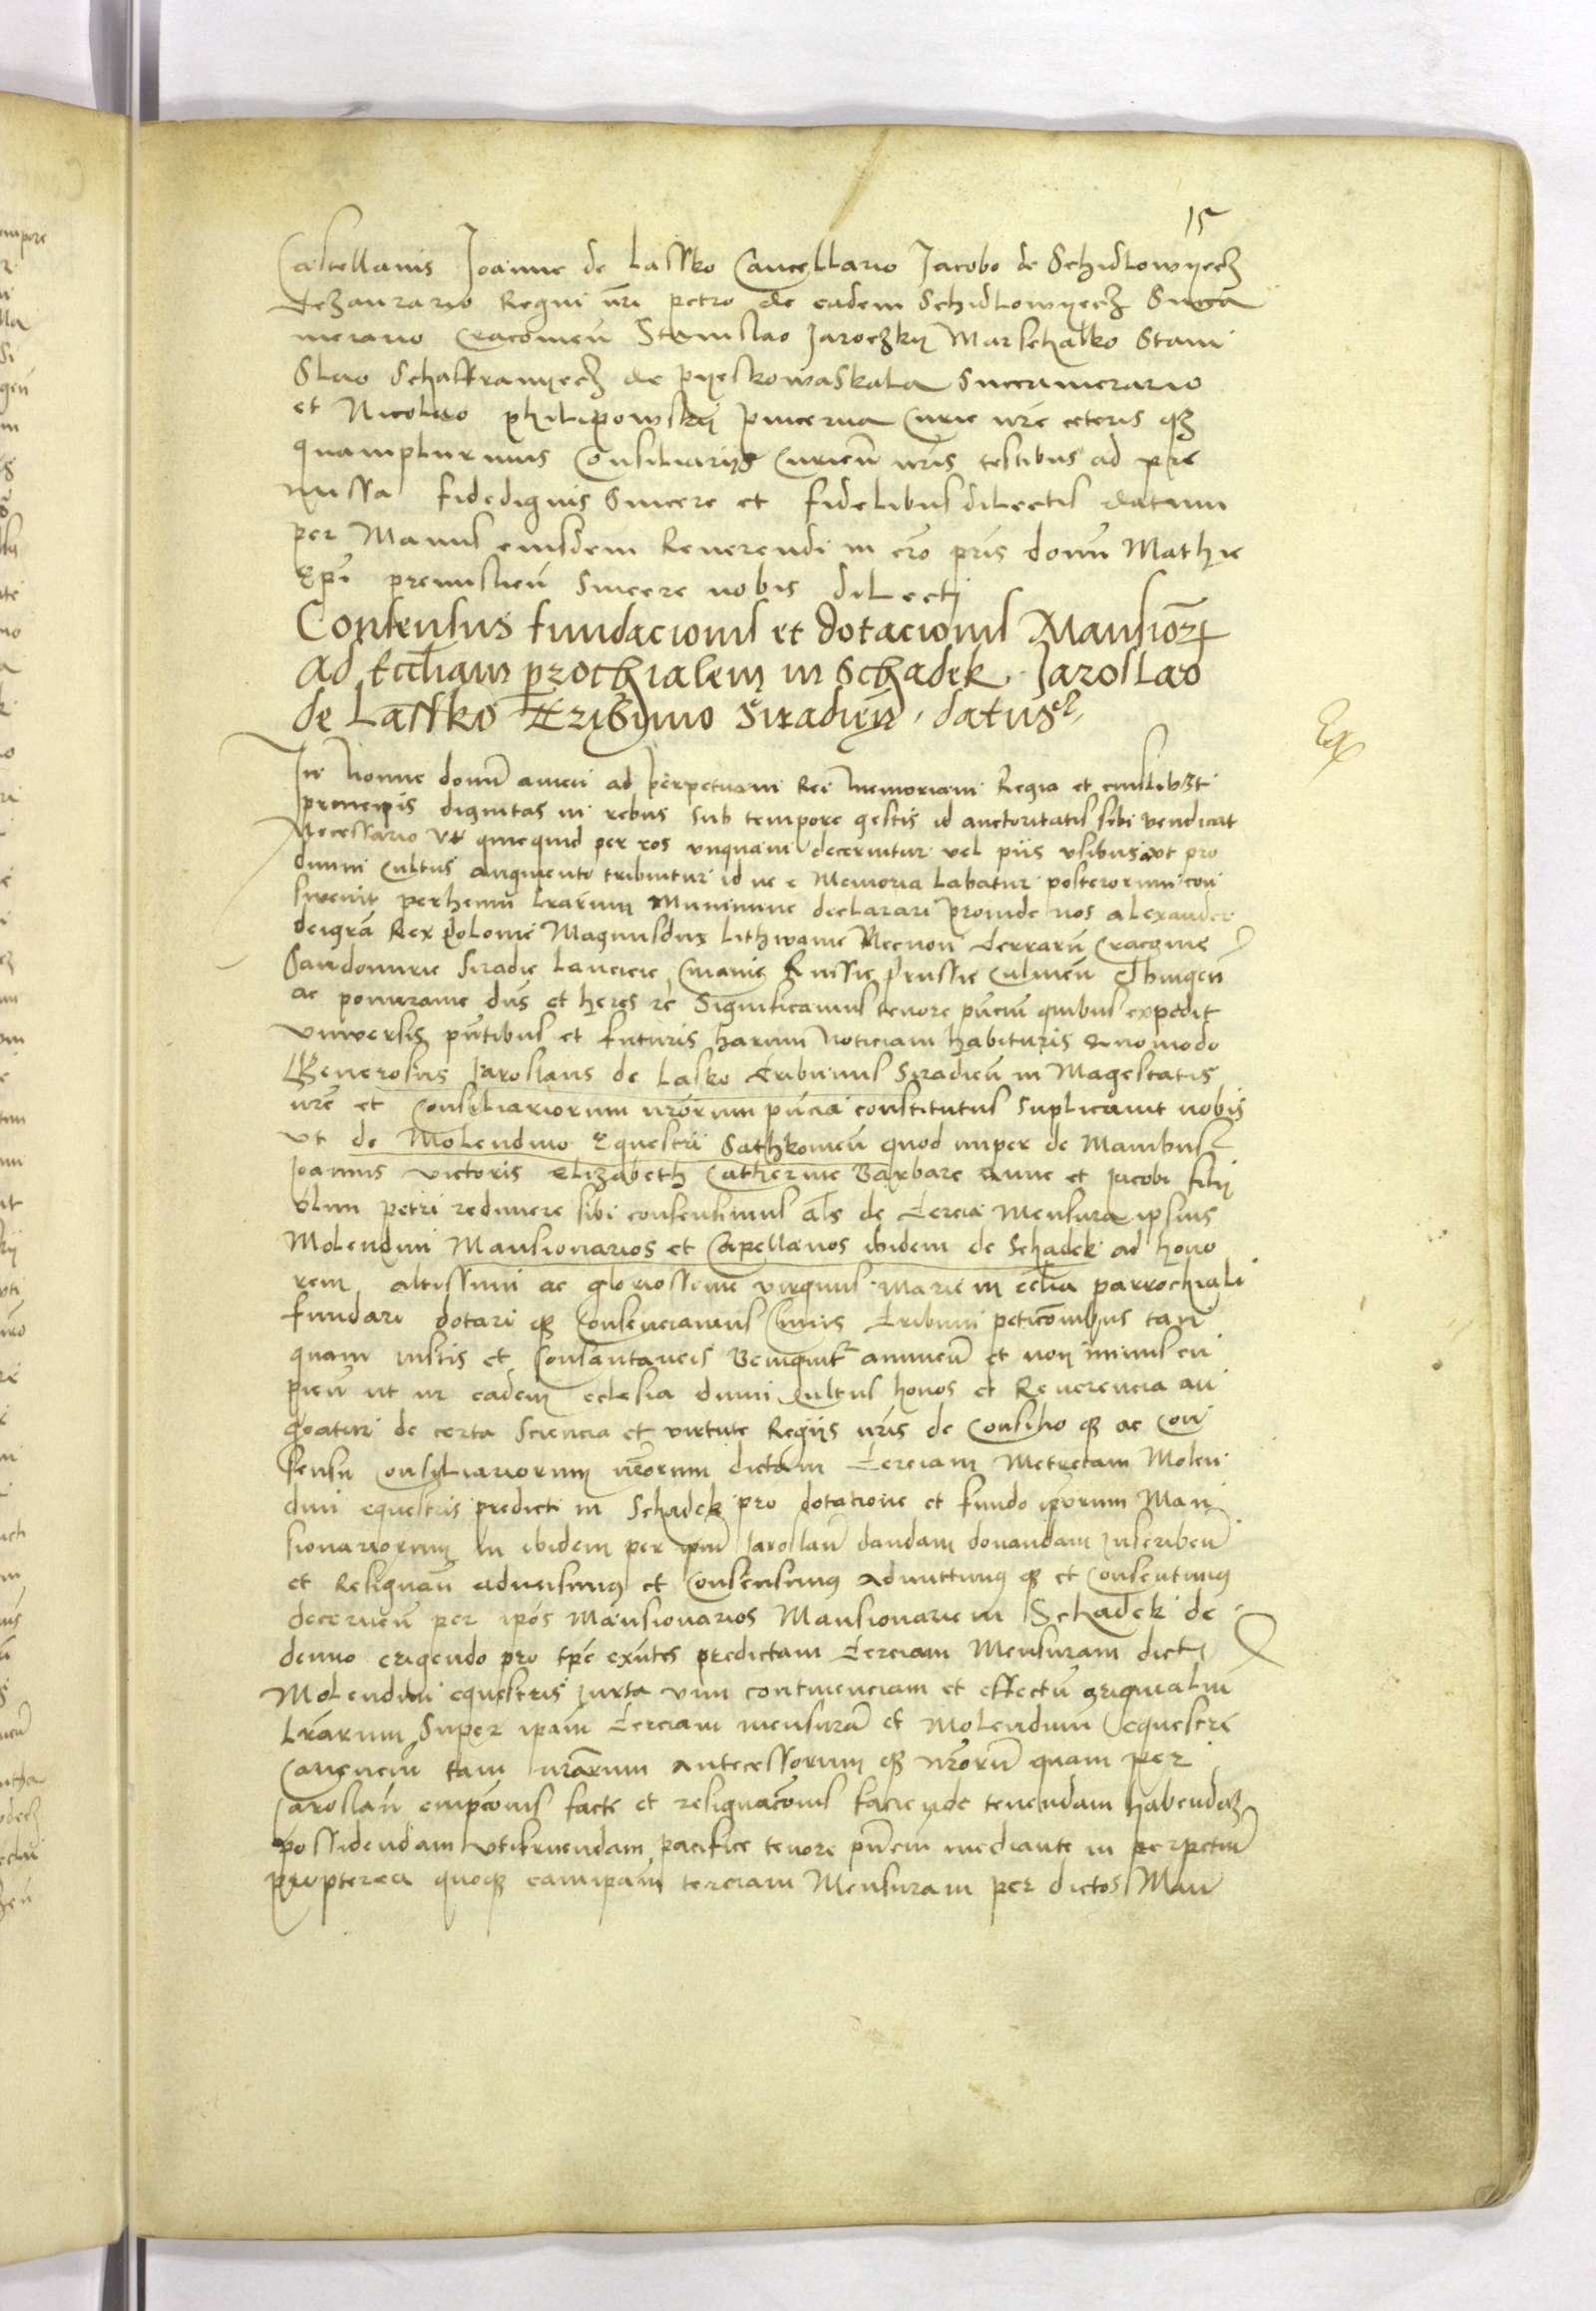 15
Castellanis Joanne de Lassko Cancellario Jacobo de Schidlowyecz
Thezaurario Regni nri petro de eadem Schidlowyecz Succa
merario Cracouien Stanislao Jaroczky Marschalko Stani
slao Schaffranyecz de pyeskowaskala Succamerario
et Nicolao philipowsky pincerna Curie nre ceteris qz
quamplurimis Consiliarijs Curien nris testibus ad pre
missa fidedignis Sincere et fidelibus dilectis datum
per Manus eiusdem Reuerendi in cro pris domi Mathie
Epi premislien Sincere nobis dilecti
Consensus fundacionis et dotacionis Mansior
ad Eccliam parochialem in Schadek Jaroslao
de Lassko Tribuno Siradien datus
Ex
In Nomine domi amen ad perpetuam Rei memoriam Regia et cuiuslibet
principis dignitas in rebus sub tempore gestis id auctoritatis sibi vendicat
Necessario ut quicquid per eos vnquam decernitur vel piis vsibus aut pro
diuini Cultus augmento tribuitur id ne e Memoria labatur posterorum con
sweuit perhenni lrarum Munimine declarari proinde nos alexander
dei gra Rex polonie Magnusdux Lithwanie Necnon terrarum Cracouie
Sandomirie Siradie Lancicie Cuiauie Russie prussie Culmen Elbingen
ac pomeranie dns et heres rc Significamus tenore pncium quibus expedit
vniuersis pntibus et futuris harum Noticiam habituris Quomodo
Generosus Jaroslaus de Lasko tribunus Siradien in Magestatis
nre et Consiliariorum nrorum pncia constitutus suplicauit nobis
vt de Molendino Equestri Sathkouien quod nuper de Manibus
Joannis victoris Elizabeth Catherine Barbare Anne et Jacobi filij
olim petri redimere sibi consensimus als de tercia Mensura ipsius
Molendini Mansionarios et Capellanos ibidem de Schadek ad hono
rem altissimi ac gloriossime virginis Marie in eclia parrochiali
fundari dotari qz Consenciamus Cuius tribuni peticonibus tan
quam iustis et Consantaneis Benignit annuen et non minus cu
pien ut in eadem eclesia diuini Cultus honos et Reuerencia au
geatur de certa Sciencia et virtute Regijs nris de Consilio qz ac Con
sensu Consiliariorum nrorum dictam terciam Metretam Molen
dini equestris predicti in Schadek pro dotatione et fundo ipsorum Man
sionariorum in ibidem per ipm Jaroslau dandam donandam inscriben
et Resignan admisimus et Consensimus Admittimus qz et Consentimus
decernen per ipos Mansionarios Mansionarie in Schadek de
denuo erigendo pro tpe exntes predictam terciam Mensuram dicti
Molendini equestris iuxta vim continenciam et effectu originaliu
lrarum Super ipam terciam mensura et Molendinu equestre
Canencin tam nrarum Antecessorum qz nroru quam per
Jaroslau empconis facte et resignaconis faciende tenendam habendaz
possidendam vtifruendam pacifice tenore pncium mediante in perpetuu
propterea quoqz eam ipam terciam Mensuram per dictos Man